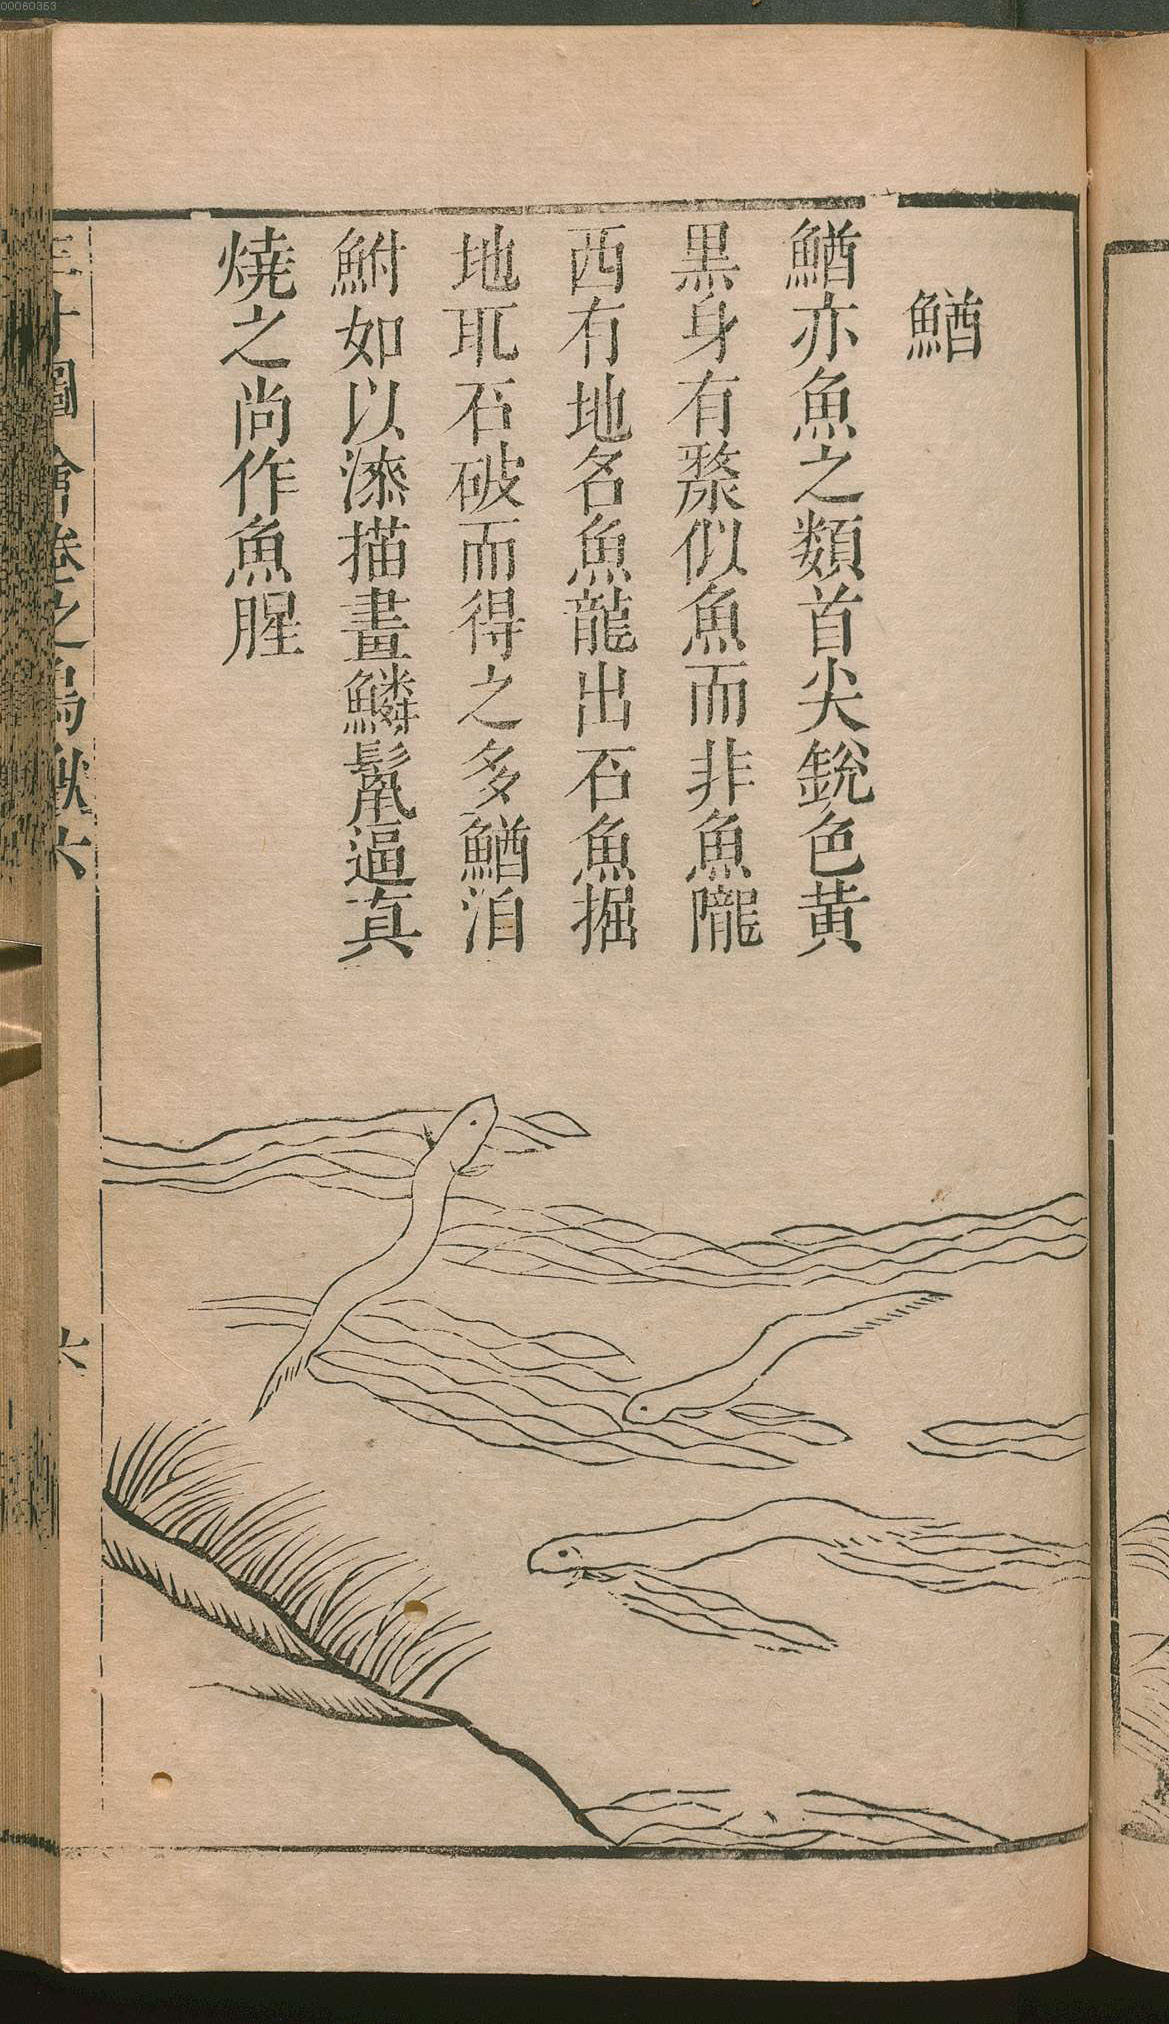 00060353
鰌
鰌亦魚之類首尖銳色黄
黒身有漦似魚而非魚隴
西有地名魚龍出石魚掘
地取石破而得之多鰌洎
鮒如以漆描畫鱗鬛逼真
燒之尚作魚腥
三才圖會卷之鳥獸六
六